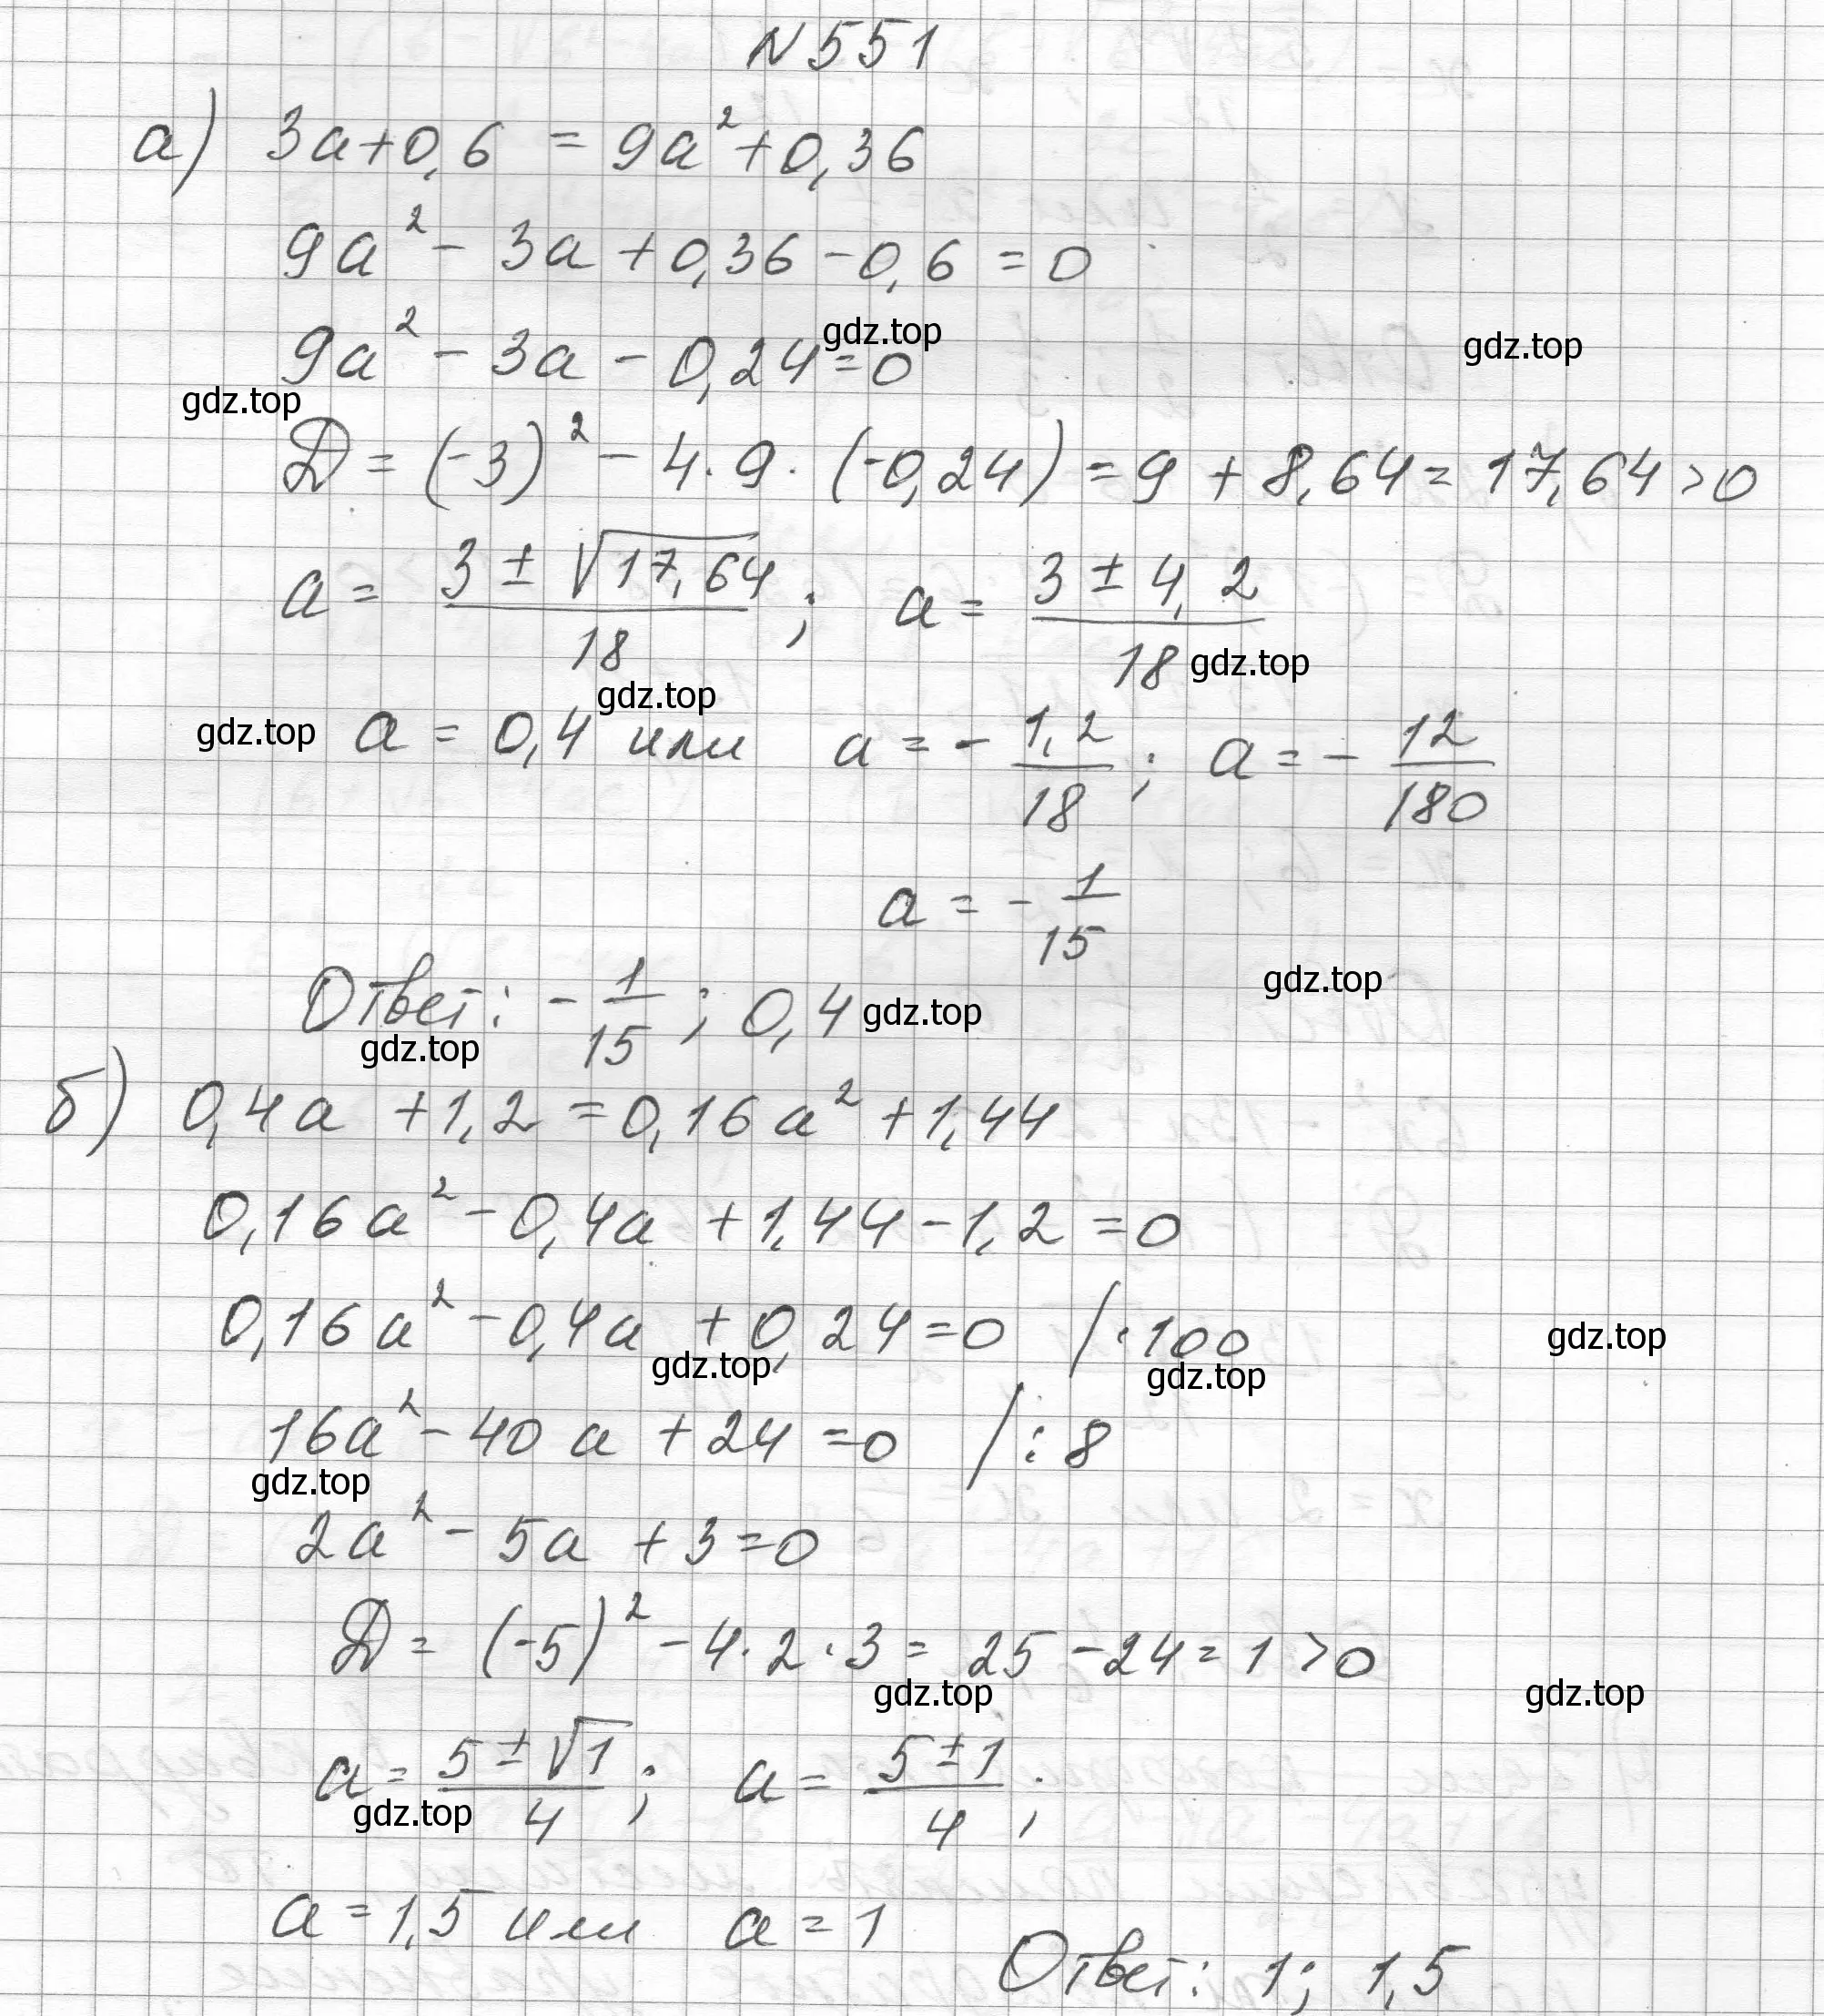 N 551
а) 3a+0,6 = 9a²+0,36
9a² - 3a + 0,36 - 0,6 = 0
gdz.top
gdz.top
9a² - 3a - 0,24 = 0
gdz.top
D = (-3)² - 4·9·(-0,24) = 9 + 8,64 = 17,64 > 0
a = (3 ± √17,64)/18 ; a = (3 ± 4,2)/18
gdz.top
gdz.top
gdz.top
a = 0,4 или a = - 1,2/18 ; a = - 12/180
a = - 1/15
gdz.top
Ответ: - 1/15 ; 0,4
gdz.top
gdz.top
б) 0,4a + 1,2 = 0,16a² + 1,44
0,16a² - 0,4a + 1,44 - 1,2 = 0
0,16a² - 0,4a + 0,24 = 0 /·100
gdz.top
gdz.top
gdz.top
16a² - 40a + 24 = 0 /:8
gdz.top
2a² - 5a + 3 = 0
D = (-5)² - 4·2·3 = 25 - 24 = 1 > 0
gdz.top
gdz.top
a = (5 ± √1)/4 ; a = (5 ± 1)/4 ;
gdz.top
a = 1,5 или a = 1
Ответ: 1; 1,5